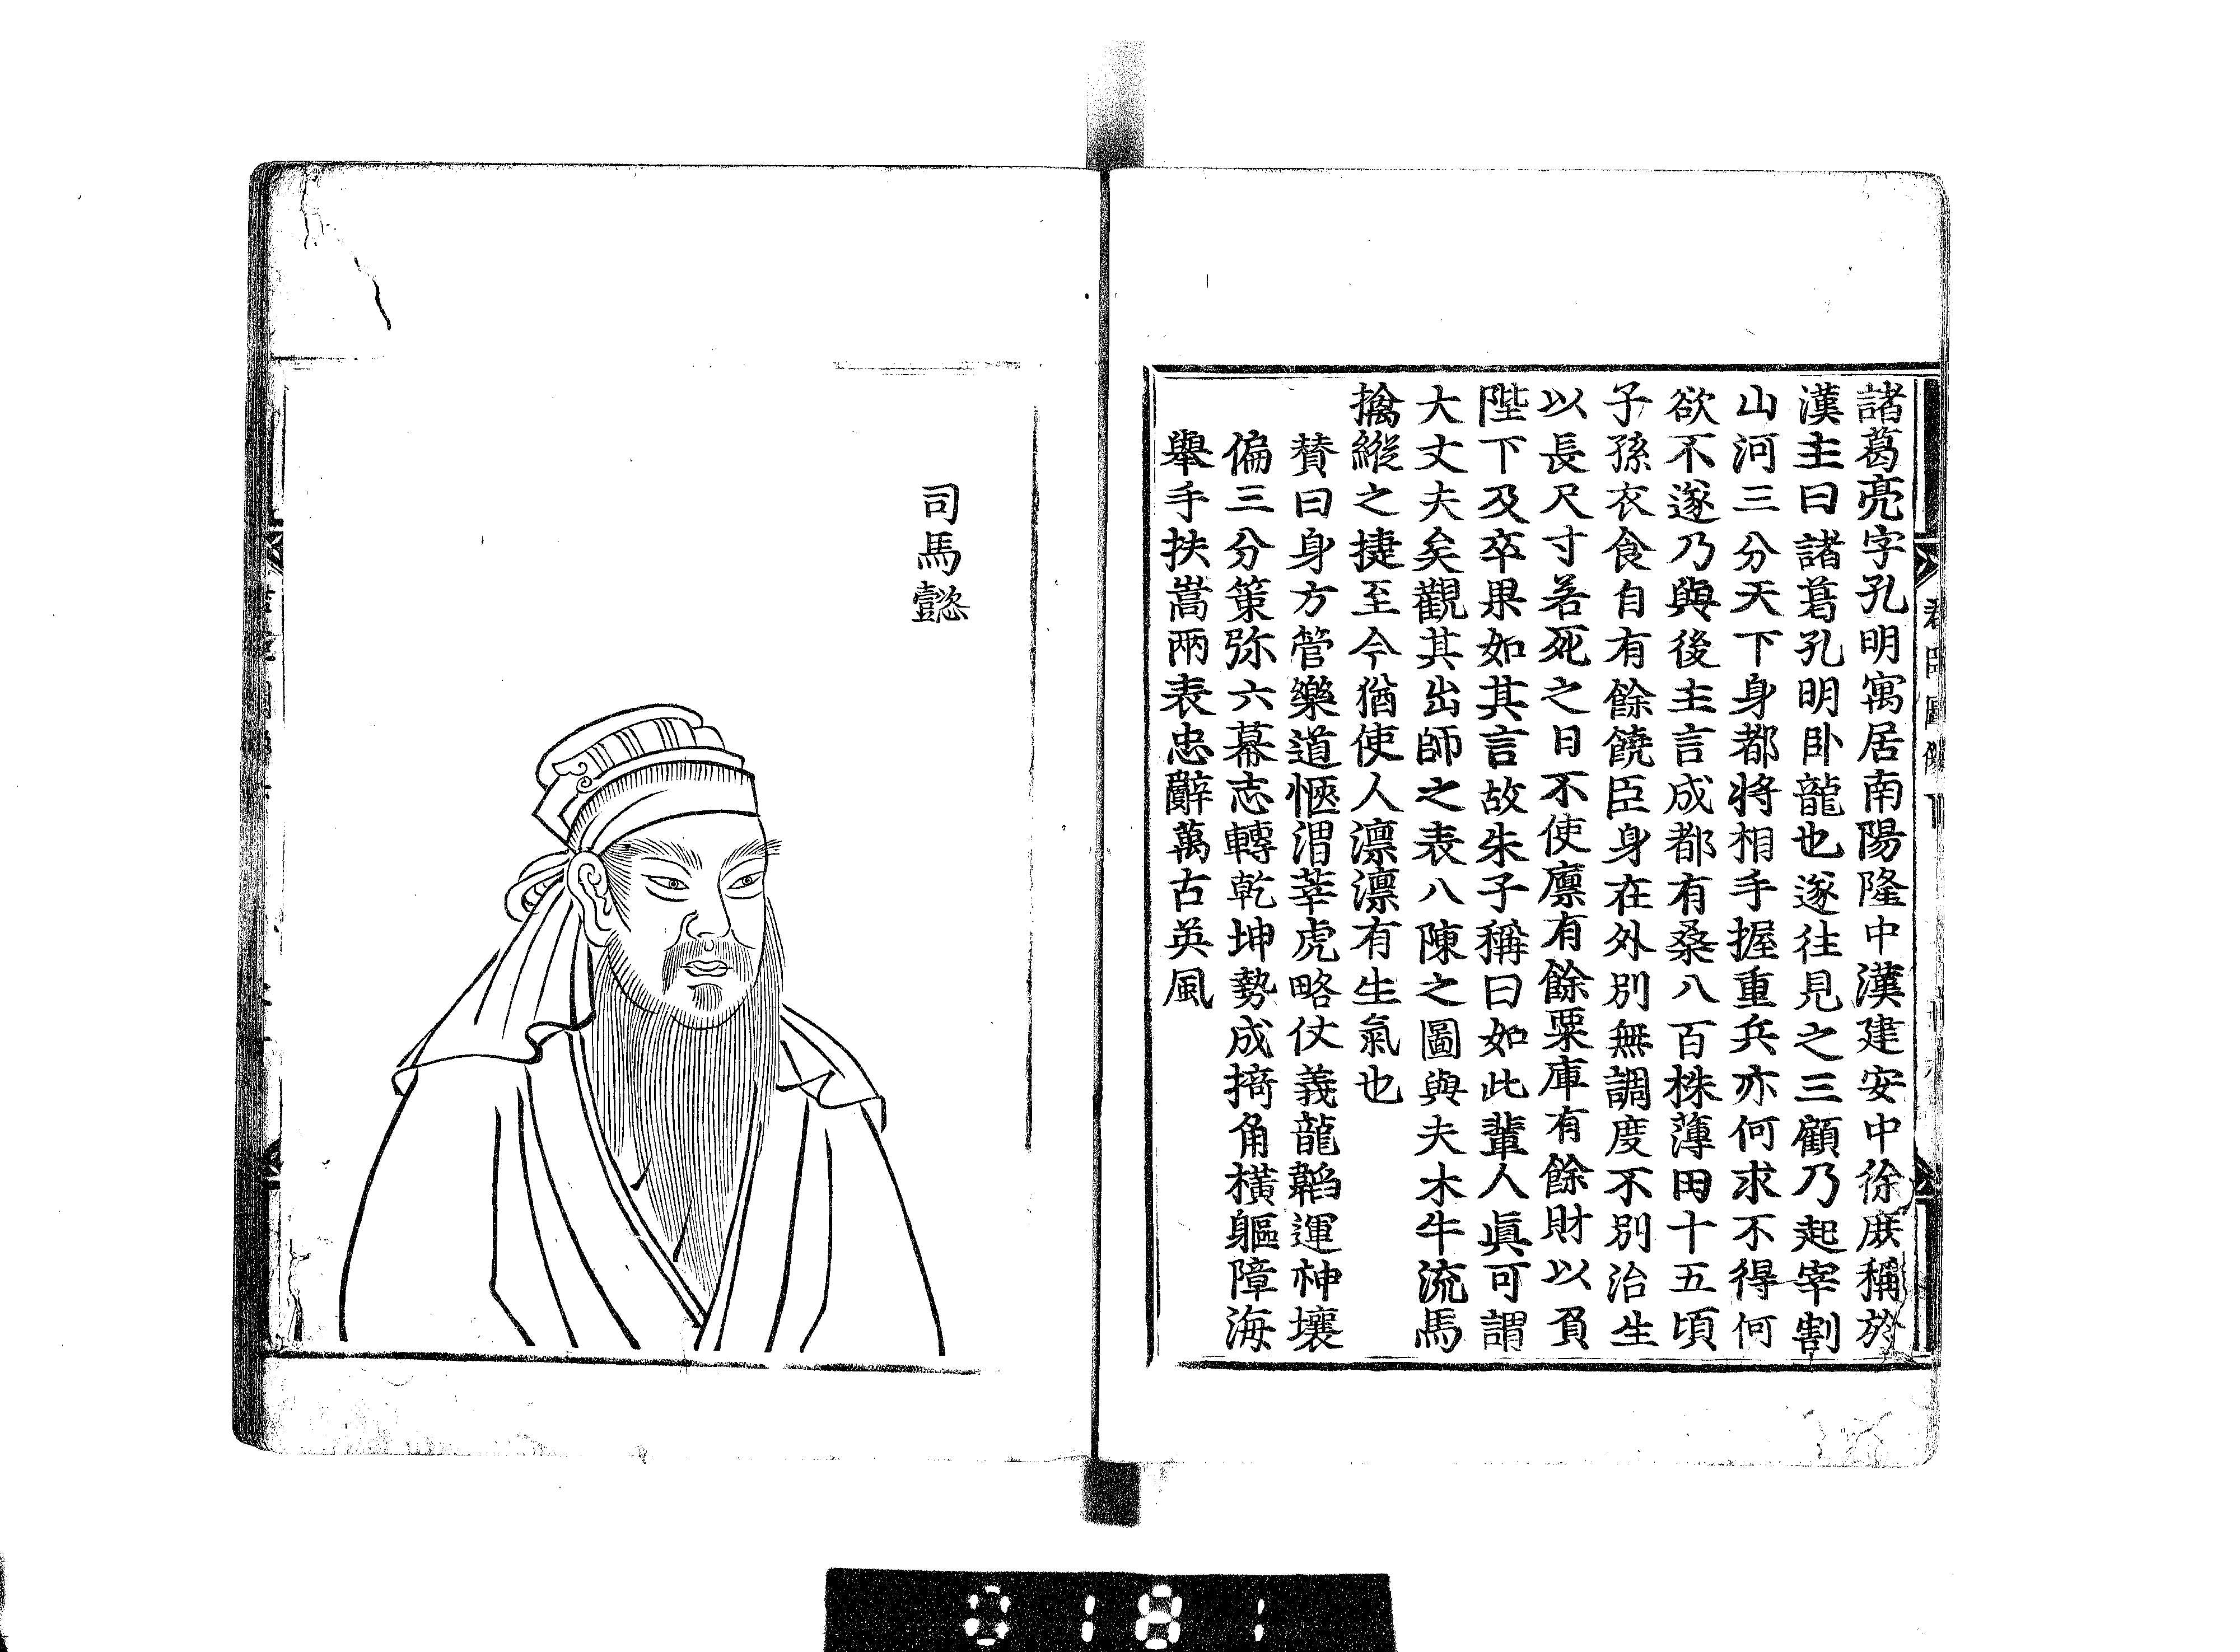 諸葛亮字孔明寓居南陽隆中漢建安中徐庶稱於
漢主曰諸葛孔明臥龍也遂往見之三顧乃起宰割
山河三分天下身都將相手握重兵亦何求不得何
欲不遂乃與後主言成都有桑八百株薄田十五頃
子孫衣食自有餘饒臣身在外別無調度不別治生
以長尺寸若死之日不使廪有餘粟庫有餘財以負
陛下及卒果如其言故朱子稱曰如此輩人眞可謂
大丈夫矣觀其出師之表八陳之圖與夫木牛流馬
擒縱之捷至今猶使人凛凛有生氣也
賛曰身方管樂道愜渭莘虎略仗義龍韜運神壤
偏三分策弥六幕志轉乾坤勢成掎角橫軀障海
舉手扶嵩兩表忠辭萬古英風
司馬懿
0181